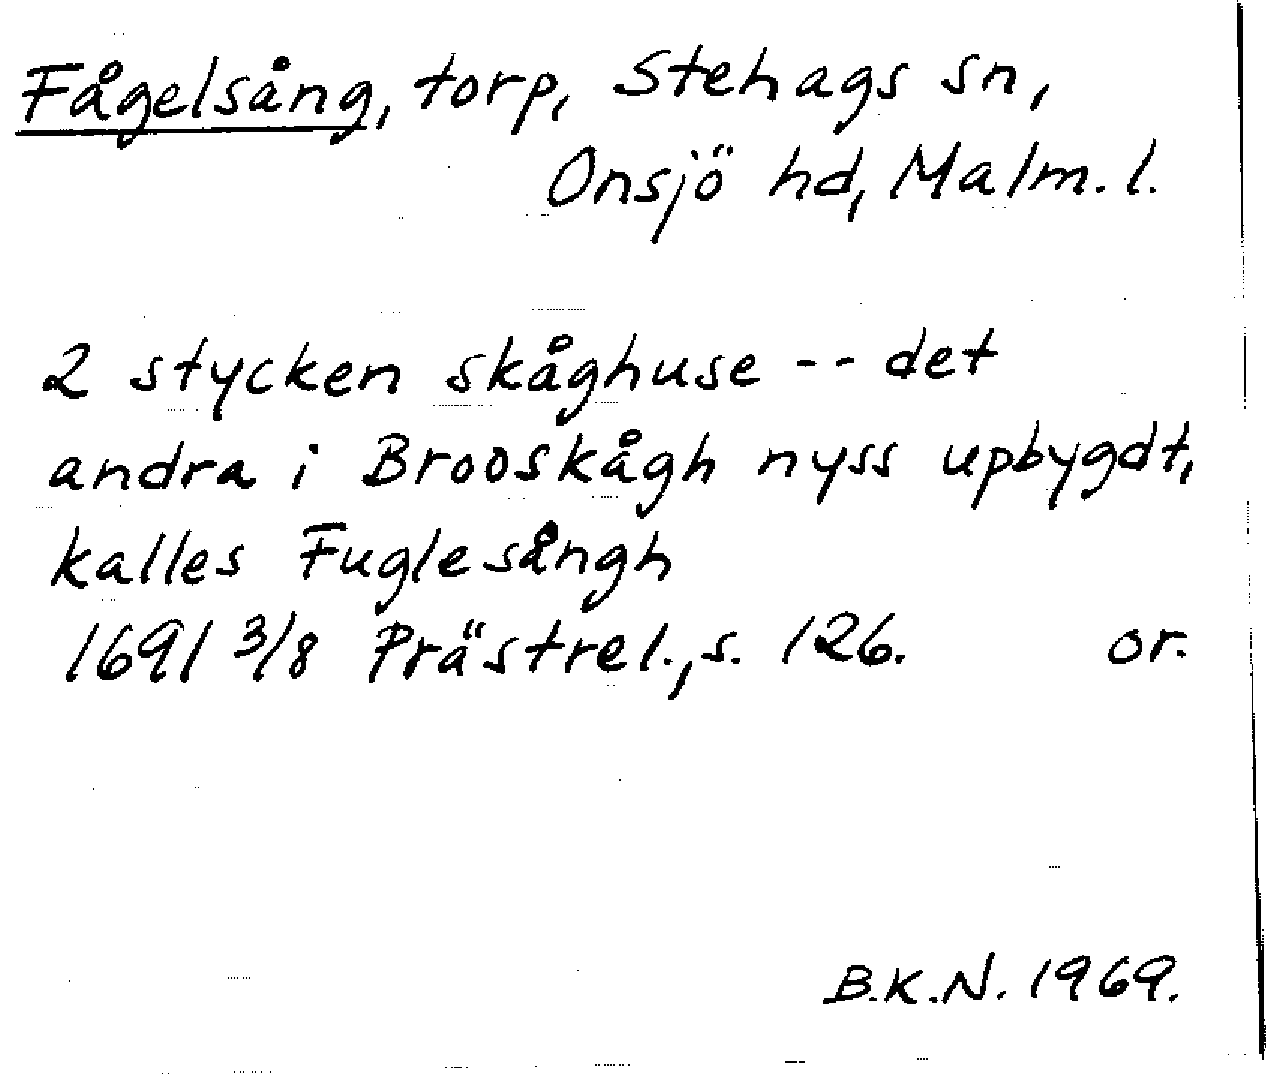 Fågelsång, torp, Stehags sn,
Onsjö hd, Malm. l.
2 stycken skåghuse -- det
andra i Brooskågh nyss upbygdt,
kalles Fuglesångh
1691 3/8 Prästrel., s. 126. or.
B.K.N. 1969.